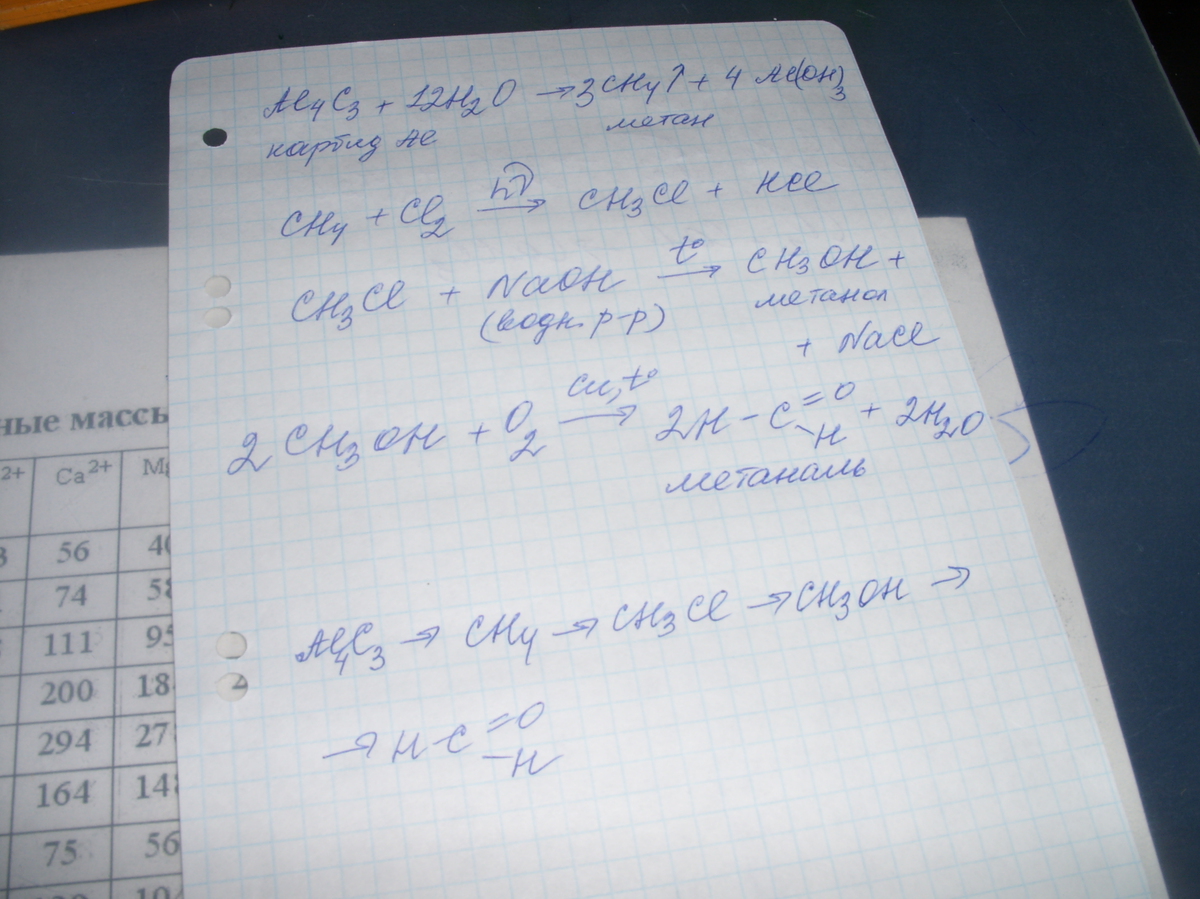 Al₄C₃ + 12H₂O → 3CH₄↑ + 4 Al(OH)₃
карбид Al метан
CH₄ + Cl₂ hν → CH₃Cl + HCl
CH₃Cl + NaOH t° → CH₃OH +
(водн. р-р) метанол
+ NaCl
2 CH₃OH + O₂ Cu, t° → 2H-C=O -H + 2H₂O
метаналь
Al₄C₃ → CH₄ → CH₃Cl → CH₃OH →
→ H-C=O -H
ные массы
2+ Ca²⁺ Mg
3 56 40
74 58
111 95
200 18
294 27
164 14
75 56